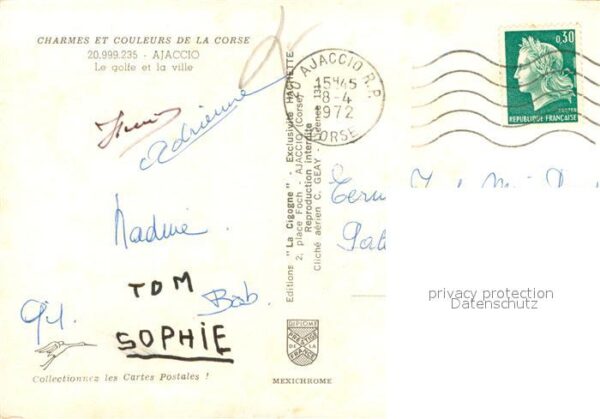 CHARMES ET COULEURS DE LA CORSE
20.999.235 - AJACCIO
Le golfe et la ville
Adrienne
Nadine
TOM
Bab.
SOPHIE
Collectionnez les Cartes Postales !
Editions "La Cigogne" - Exclusivité HACHETTE
2, place Foch - AJACCIO (Corse)
Reproduction interdite
Cliché aérien C. GEAY - Licence 131
DIPLOME
PRESTIGE
DE LA
FRANCE
MEXICHROME
20 AJACCIO R.P.
15H45
8-4
1972
CORSE
0,30
REPUBLIQUE FRANÇAISE
privacy protection
Datenschutz